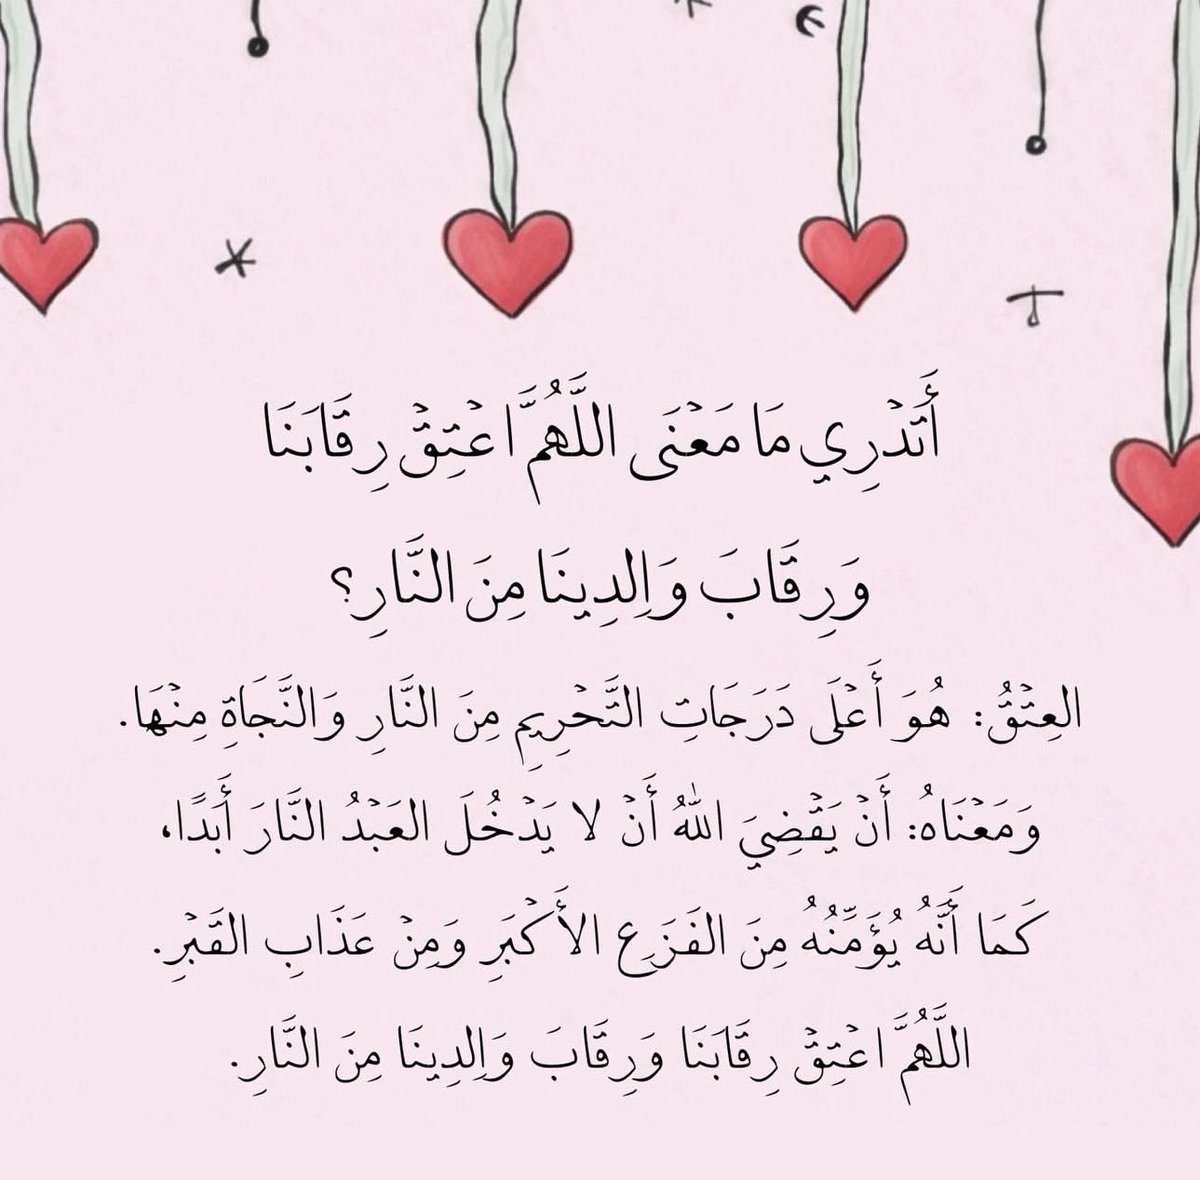 أَتَدْرِي مَا مَعْنَى اللَّهُمَّ اعْتِقْ رِقَابَنَا
وَرِقَابَ وَالِدِينَا مِنَ النَّارِ؟
العِتْقُ: هُوَ أَعْلَى دَرَجَاتِ التَّحْرِيمِ مِنَ النَّارِ وَالنَّجَاةِ مِنْهَا.
وَمَعْنَاهُ: أَنْ يَقْضِيَ اللهُ أَنْ لا يَدْخُلَ العَبْدُ النَّارَ أَبَدًا،
كَمَا أَنَّهُ يُؤَمِّنُهُ مِنَ الفَزَعِ الأَكْبَرِ وَمِنْ عَذَابِ القَبْرِ.
اللَّهُمَّ اعْتِقْ رِقَابَنَا وَرِقَابَ وَالِدِينَا مِنَ النَّارِ.